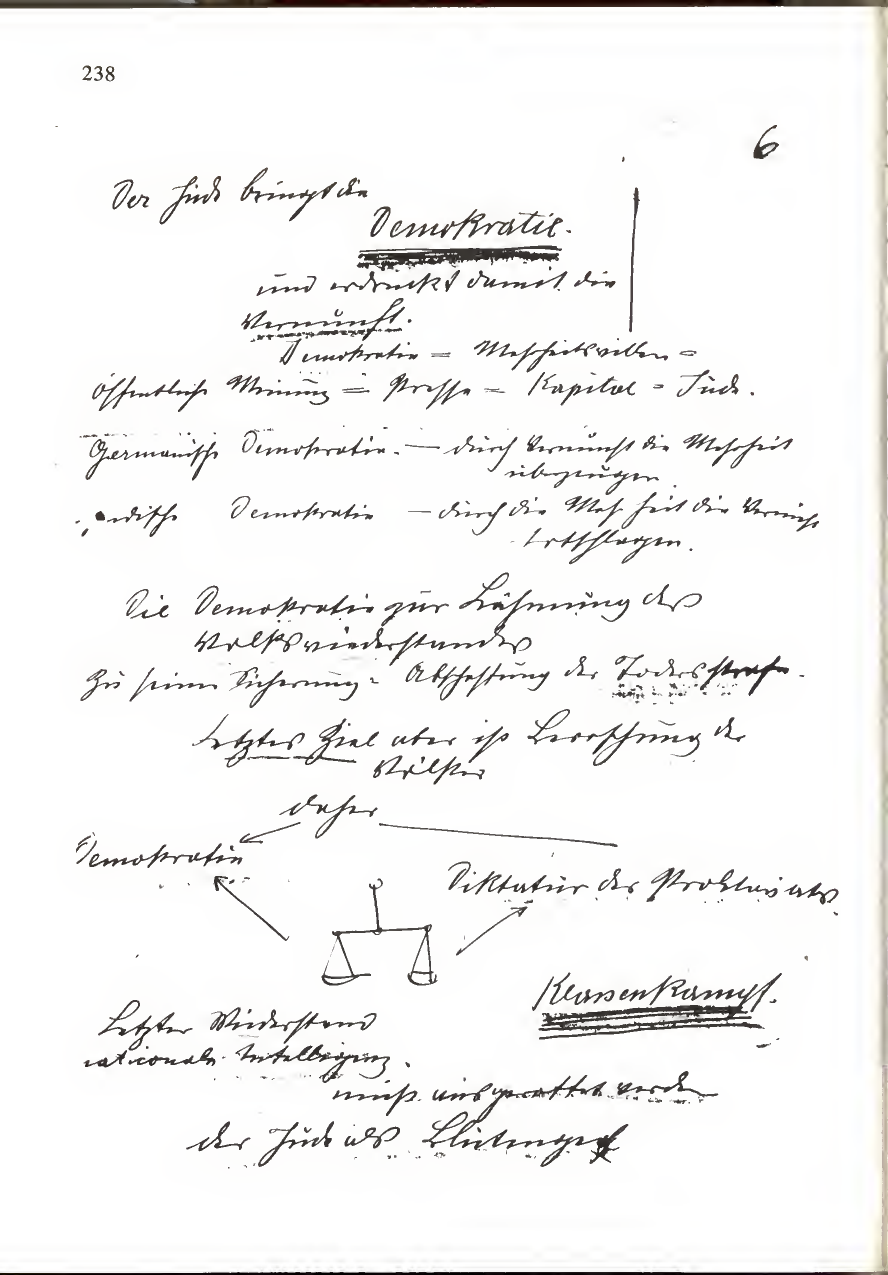 238
6
Der Jude bringt die
Demokratie.
und erdrückt damit die
Vernunft.
Demokratie = Mehrheitswillen =
Öffentliche Meinung = Presse = Kapital = Jude.
Germanische Demokratie. — durch Vernunft die Mehrheit
überzeugen
Demokratie — durch die Mehrheit die Vernunft
totschlagen.
Die Demokratie zur Lähmung des
Volkswiederstandes
Zu seiner Sicherung = Abschaffung der Todesstrafe.
Letztes Ziel aber ist Beherrschung der
Völker
daher
Demokratie
Diktatur des Proletariats
Klassenkampf.
Letzter Wiederstand
nationale Intelligenz.
muß ausgerottet werden
der Jude als